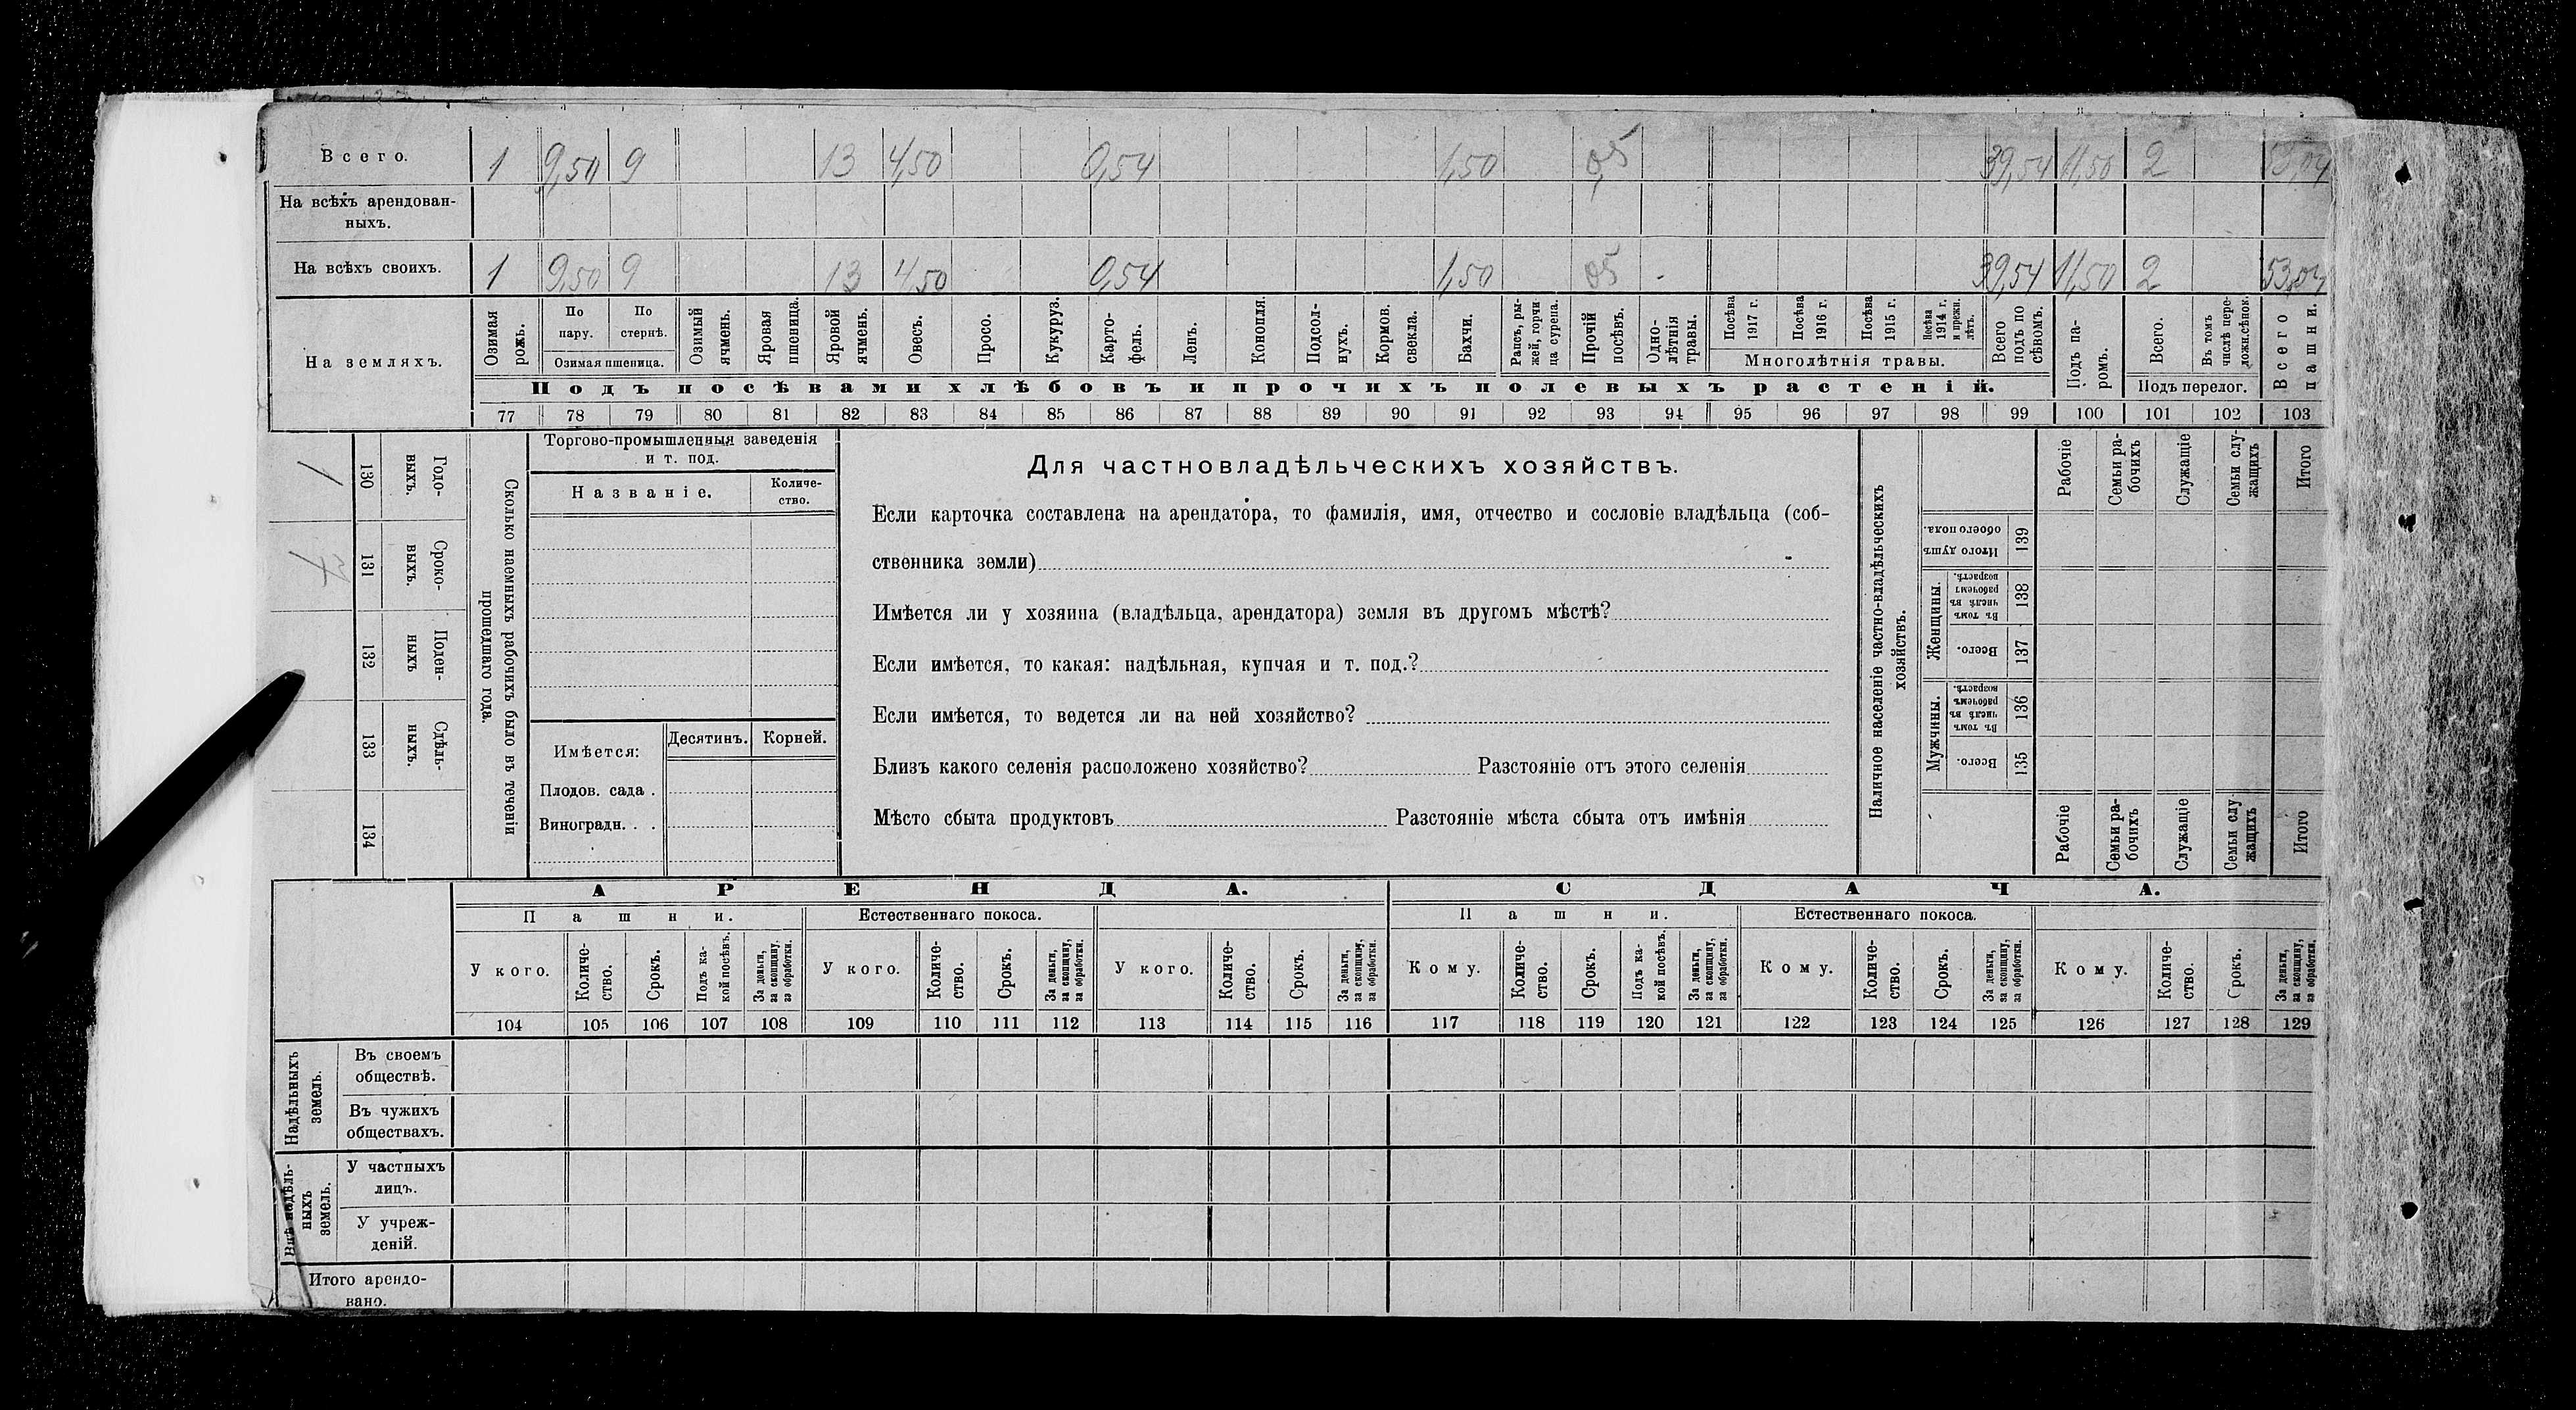 Всего. 1 9,50 9 13 4,50 0,54 1,50 0,5 39,54 11,50 2 53,04
На всѣхъ арендован-
ныхъ.
На всѣхъ своихъ. 1 9,50 9 13 4,50 0,54 1,50 05 39,54 11,50 2 53,04
На земляхъ.
Озимая рожь.
По пару.
По стернѣ.
Озимая пшеница.
Озимый ячмень.
Яровая пшеница.
Яровой ячмень.
Овесъ.
Просо.
Кукуруз.
Карто-
фель.
Ленъ.
Конопля.
Подсол-
нухъ.
Кормов.
свекла.
Бахчи.
Рапсъ, ры-
жей, горчи
ца сурепа.
Прочій
посѣвъ.
Одно-
лѣтнія
травы.
Посѣва
1917 г.
Посѣва
1916 г.
Посѣва
1915 г.
Посѣва
1914 г.
и прежн.
лѣтъ.
Многолѣтнія травы.
Всего
подъ по
сѣвомъ.
Подъ па-
ромъ.
Всего.
Въ томъ
числѣ пере-
ложн.сѣнок.
Подъ перелог.
Всего
пашни.
Подъ посѣвами хлѣбовъ и прочихъ полевыхъ растеній.
77 78 79 80 81 82 83 84 85 86 87 88 89 90 91 92 93 94 95 96 97 98 99 100 101 102 103
Сколько наемныхъ рабочихъ было въ теченіи
прошедшаго года.
Годо-
выхъ.
130
1
Сроко-
выхъ.
131
Поден-
ныхъ
132
Сдѣль-
ныхъ.
133
134
Торгово-промышленныя заведенія
и т. под.
Названіе.
Количе-
ство.
Имѣется: Десятинъ. Корней.
Плодов. сада .
Виноградн. . .
Для частновладѣльческихъ хозяйствъ.
Если карточка составлена на арендатора, то фамилія, имя, отчество и сословіе владѣльца (соб-
ственника земли)
Имѣется ли у хозяина (владѣльца, арендатора) земля въ другомъ мѣстѣ?
Если имѣется, то какая: надѣльная, купчая и т. под.?
Если имѣется, то ведется ли на ней хозяйство?
Близъ какого селенія расположено хозяйство? Разстояніе отъ этого селенія
Мѣсто сбыта продуктовъ Разстояніе мѣста сбыта отъ имѣнія
Наличное населеніе частно-владѣльческихъ
хозяйствъ.
Рабочіе
Семьи ра-
бочихъ
Служащіе
Семьи слу-
жащихъ
Итого
Итого душъ
обоего пола.
139
Женщины.
Въ томъ
числѣ въ
рабочемъ
возрастѣ.
138
Всего.
137
Мужчины.
Въ томъ
числѣ въ
рабочемъ
возрастѣ.
136
Всего.
135
Рабочіе
Семьи ра-
бочихъ
Служащіе
Семьи слу
жащихъ
Итого
АРЕНДА. СДАЧА.
Пашни. Естественнаго покоса. Пашни. Естественнаго покоса.
У кого.
Количе-
ство.
Срокъ.
Подъ ка-
кой посѣвъ.
За деньги,
за скопщину,
за обработки.
У кого.
Количе-
ство.
Срокъ.
За деньги,
за скопщину,
за обработки.
У кого.
Количе-
ство.
Срокъ.
За деньги,
за скопщину,
за обработки.
Кому.
Количе-
ство.
Срокъ.
Подъ ка-
кой посѣвъ.
За деньги,
за скопщину,
за обработки.
Кому.
Количе-
ство.
Срокъ.
За деньги,
за скопщину,
за обработки.
Кому.
Количе-
ство.
Срокъ.
За деньги,
за скопщину,
за обработки.
104 105 106 107 108 109 110 111 112 113 114 115 116 117 118 119 120 121 122 123 124 125 126 127 128 129
Надѣльныхъ
земель.
Въ своемъ
обществѣ.
Въ чужихъ
обществахъ.
Внѣ надѣль-
ныхъ
земель.
У частныхъ
лицъ.
У учреж-
деній.
Итого арендо-
вано.